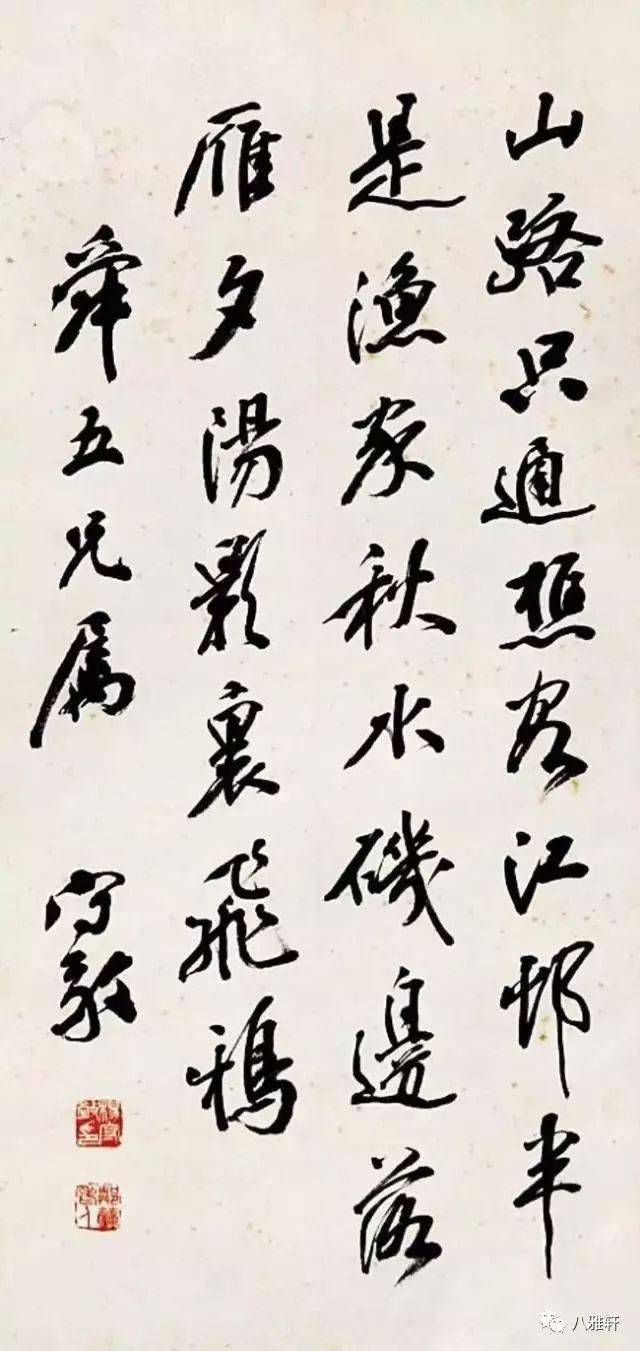 山路只通樵客江邨半
是漁家秋水磯邊落
雁夕陽影裏飛鴉
舜五兄属
守敬
八雅轩